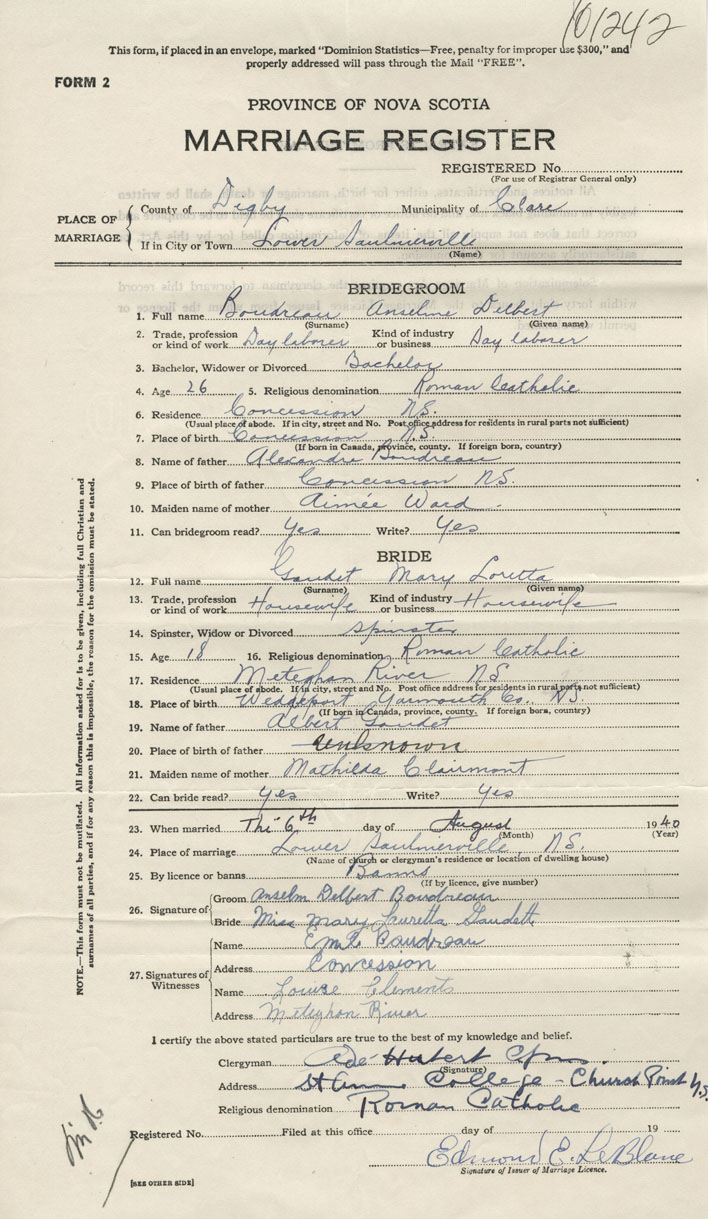 101242
This form, if placed in an envelope, marked "Dominion Statistics—Free, penalty for improper use $300," and
properly addressed will pass through the Mail "FREE".
FORM 2
PROVINCE OF NOVA SCOTIA
MARRIAGE REGISTER
REGISTERED No.
(For use of Registrar General only)
PLACE OF MARRIAGE
County of Digby Municipality of Clare
If in City or Town Lower Saulnierville
(Name)
BRIDEGROOM
1. Full name Boudreau Anselme Delbert
(Surname) (Given name)
2. Trade, profession or kind of work Day laborer Kind of industry or business Day laborer
3. Bachelor, Widower or Divorced Bachelor
4. Age 26 5. Religious denomination Roman Catholic
6. Residence Concession N.S.
(Usual place of abode. If in city, street and No. Post office address for residents in rural parts not sufficient)
7. Place of birth Concession N.S.
(If born in Canada, province, county. If foreign born, country)
8. Name of father Alexandre Boudreau
9. Place of birth of father Concession N.S.
10. Maiden name of mother Aimée Ward
11. Can bridegroom read? Yes Write? Yes
BRIDE
12. Full name Gaudet Mary Loretta
(Surname) (Given name)
13. Trade, profession or kind of work Housewife Kind of industry or business Housewife
14. Spinster, Widow or Divorced Spinster
15. Age 18 16. Religious denomination Roman Catholic
17. Residence Meteghan River N.S.
(Usual place of abode. If in city, street and No. Post office address for residents in rural parts not sufficient)
18. Place of birth Wedgeport Yarmouth Co. N.S.
(If born in Canada, province, county. If foreign born, country)
19. Name of father Albert Gaudet
20. Place of birth of father Unknown
21. Maiden name of mother Mathilda Clairmont
22. Can bride read? Yes Write? Yes
23. When married The 6th day of August 1940
(Month) (Year)
24. Place of marriage Lower Saulnierville, N.S.
(Name of church or clergyman's residence or location of dwelling house)
25. By licence or banns Banns
(If by licence, give number)
26. Signature of
Groom Anselm Delbert Boudreau
Bride Miss Mary Lauretta Gaudett
27. Signatures of Witnesses
Name Emile Boudreau
Address Concession
Name Louise Clements
Address Meteghan River
I certify the above stated particulars are true to the best of my knowledge and belief.
Clergyman Hubert
(Signature)
Address St Anne College - Church Point N.S.
Religious denomination Roman Catholic
Registered No. Filed at this office day of 19
Edmond E. LeBlanc
Signature of Issuer of Marriage Licence.
[SEE OTHER SIDE]
NOTE.—This form must not be mutilated. All information asked for is to be given, including full Christian and
surnames of all parties, and if for any reason this is impossible, the reason for the omission must be stated.